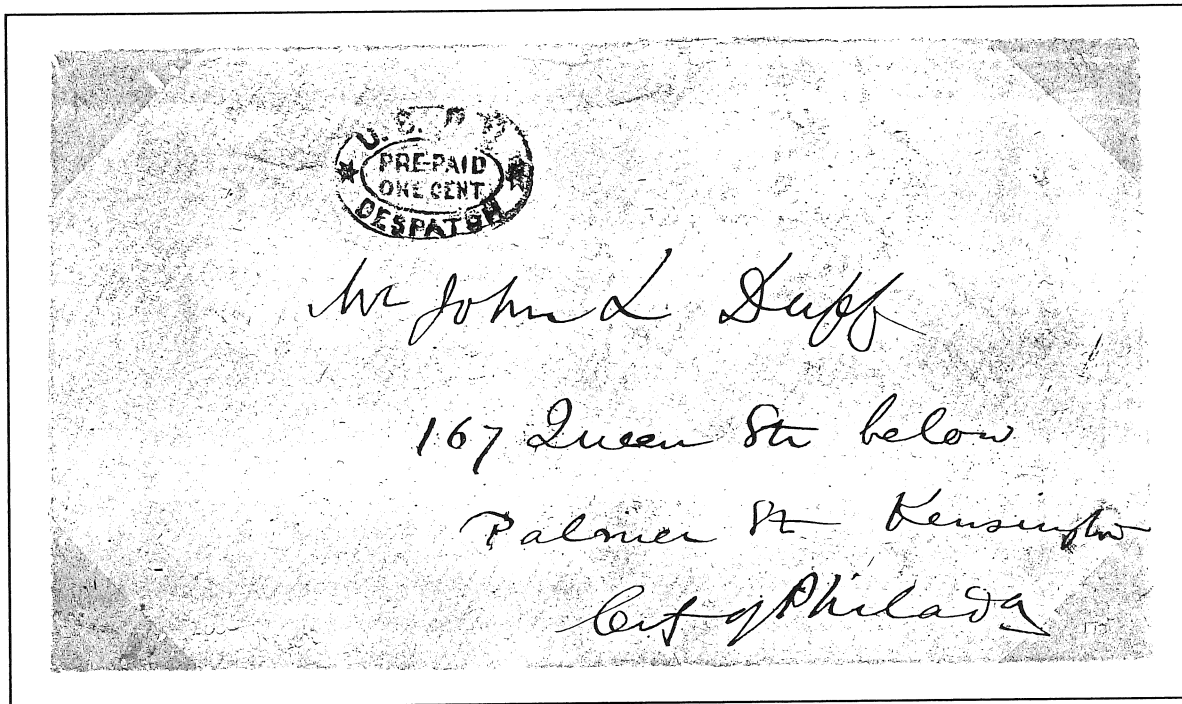 U. S. P. P.
PRE-PAID
ONE CENT
DESPATCH
Mr John L Duff
167 Queen Str below
Palmer St Kensington
City of Philada